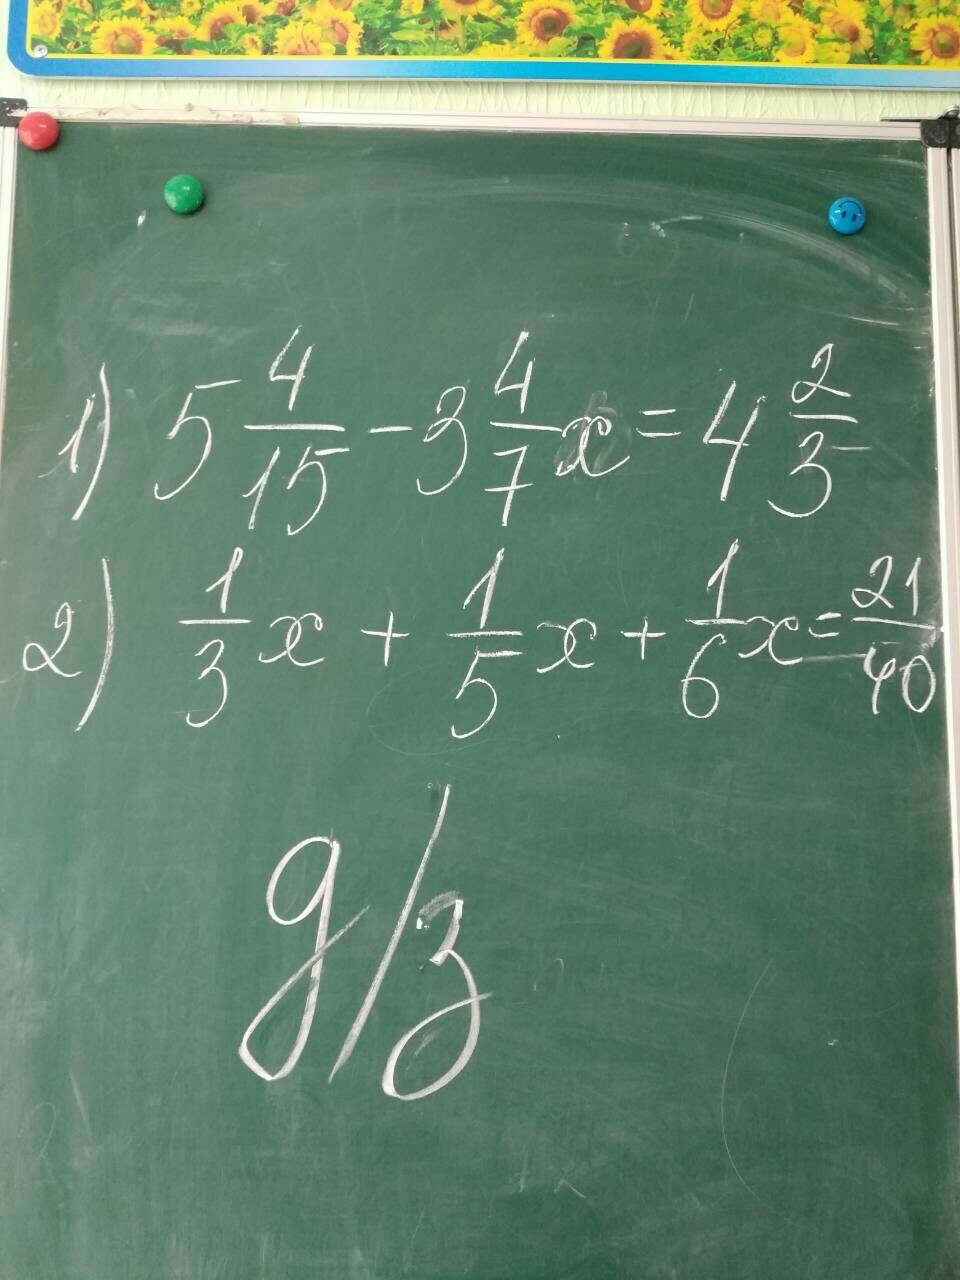 1) 5 4/15 - 3 4/7 x = 4 2/3
2) 1/3 x + 1/5 x + 1/6 x = 21/40
д/з